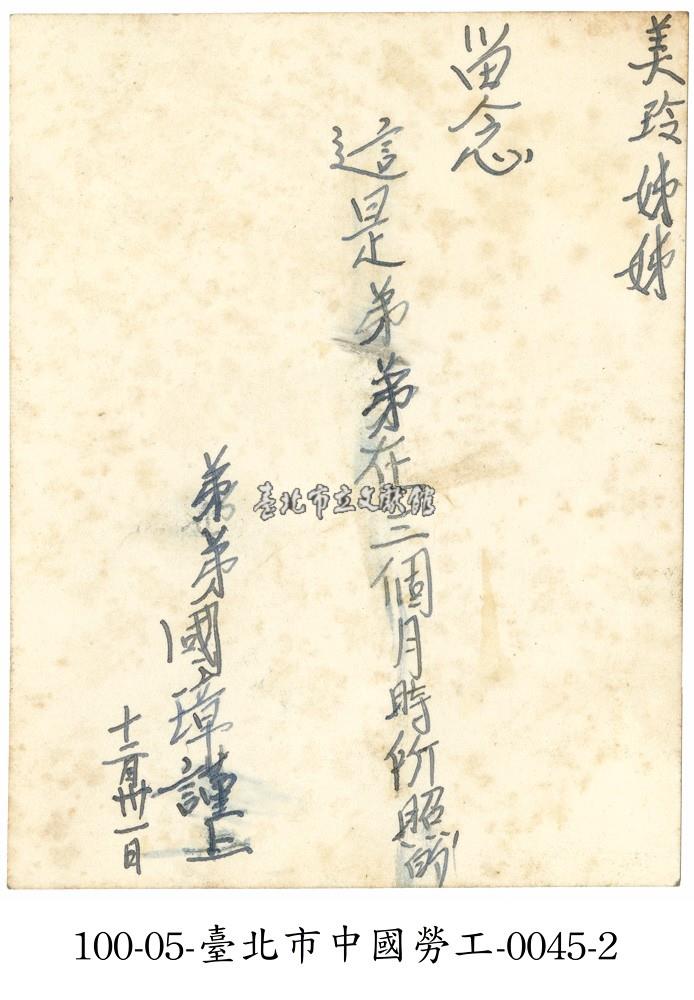 美玲姊姊
留念
這是弟弟在三個月時所照的
弟弟國璋謹上
十二月卅一日
臺北市立文獻館
100-05-臺北市中國勞工-0045-2